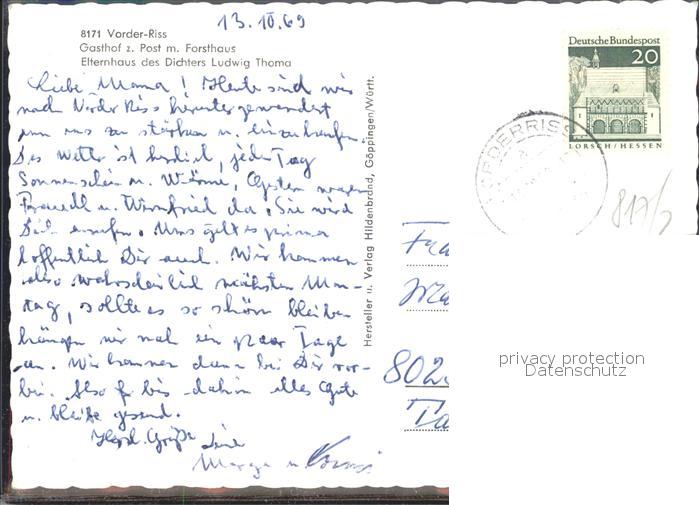 13.10.69
8171 Vorder-Riss
Gasthof z. Post m. Forsthaus
Elternhaus des Dichters Ludwig Thoma
Liebe Mama! Heute sind wir
nach Vorder Riss heruntergewandert
um uns zu stärken u. einzukaufen.
Das Wetter ist herrlich, jeden Tag
Sonnenschein u. Wärme, Gestern waren
u. Winfried da. Sie wird
Dich anrufen. Uns geht es prima
hoffentlich Dir auch. Wir kommen
also wahrscheinlich nächsten Mon-
tag, sollte es so schön bleiben
hängen wir noch ein paar Tage
an. Wir kommen dann bei Dir vor-
bei. Also bis dahin alles Gute
u. bleibe gesund.
Herzl. Grüße
Hersteller u. Verlag Hildenbrand, Göppingen/Württ.
Deutsche Bundespost
20
LORSCH/HESSEN
VORDERRISS
802
privacy protection
Datenschutz